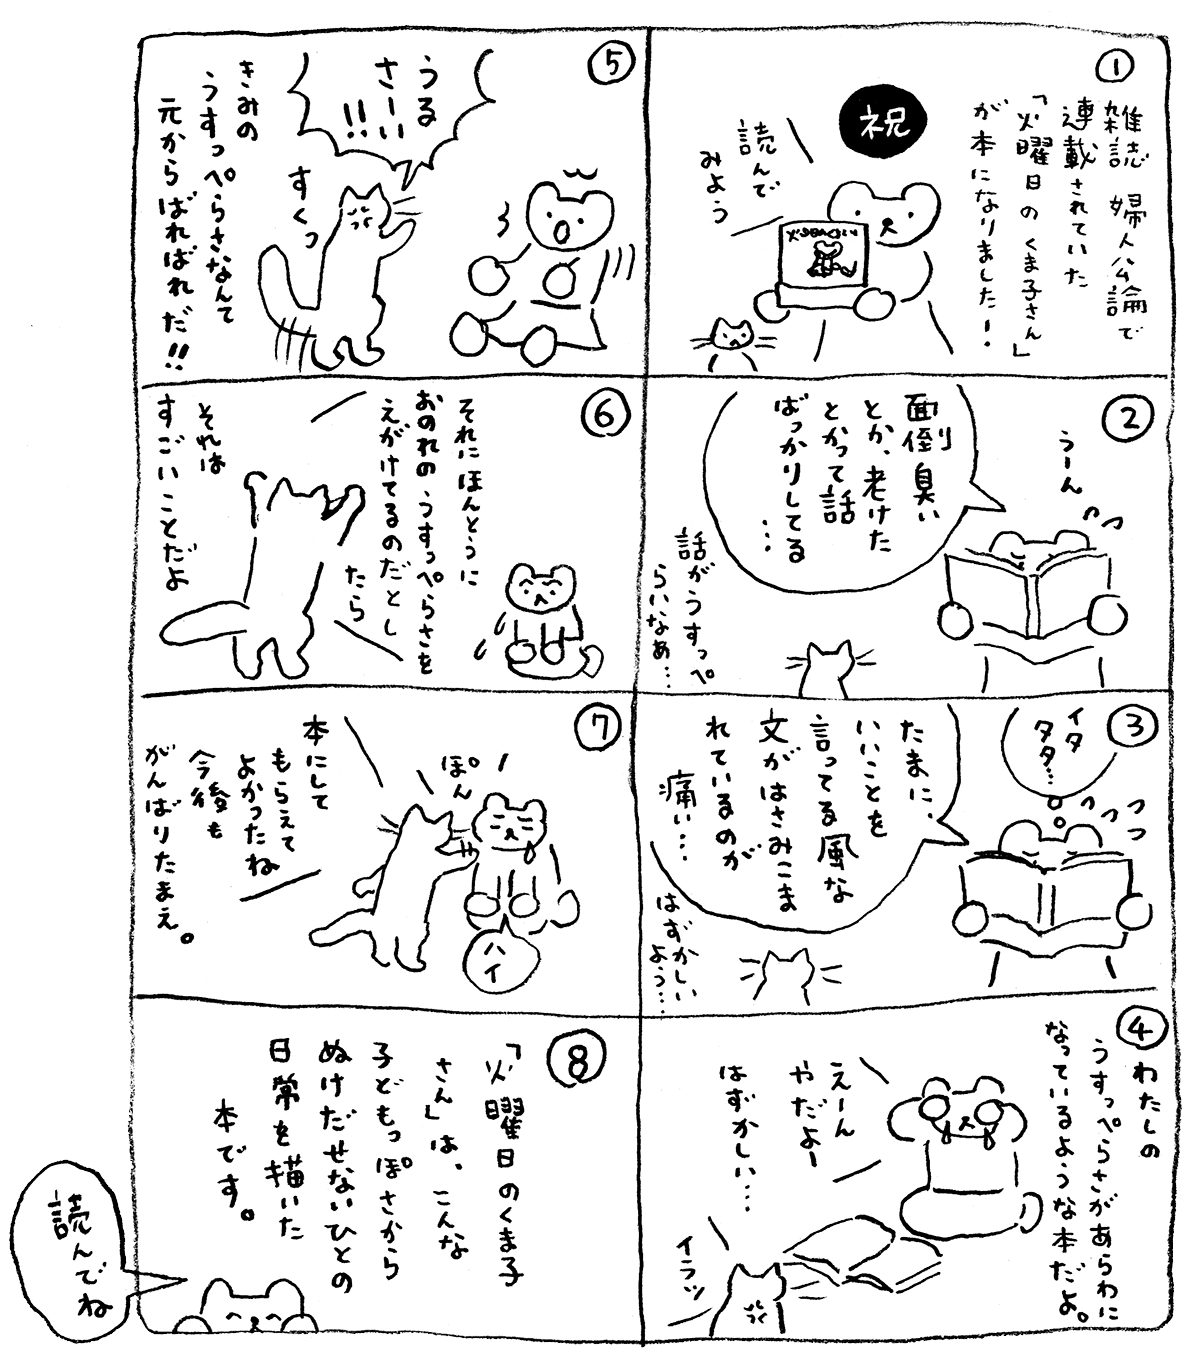 ①
雑誌 婦人公論で
連載されていた
「火曜日のくま子さん」
が本になりました!
祝
読んで
みよう
火曜日のくま子さん
②
うーん
面倒臭い
とか、老けた
とかって話
ばっかりしてる
…
話がうすっぺ
らいなあ…
③
イタ
タタ…
たまに、
いいことを
言ってる風な
文がはさみこま
れているのが
痛い…
はずかしい
よう…
④
わたしの
うすっぺらさがあらわに
なっているような本だよ。
えーん
やだよー
はずかしい…
イラッ
⑤
うる
さーい
!!
すくっ
きみの
うすっぺらさなんて
元からばればれだ!!
⑥
それにほんとうに
おのれのうすっぺらさを
えがけてるのだとし
たら
それは
すごいことだよ
⑦
ぽん
ハイ
本にして
もらえて
よかったね
今後も
がんばりたまえ。
⑧
「火曜日のくま子
さん」は、こんな
子どもっぽさから
ぬけだせないひとの
日常を描いた
本です。
読んでね